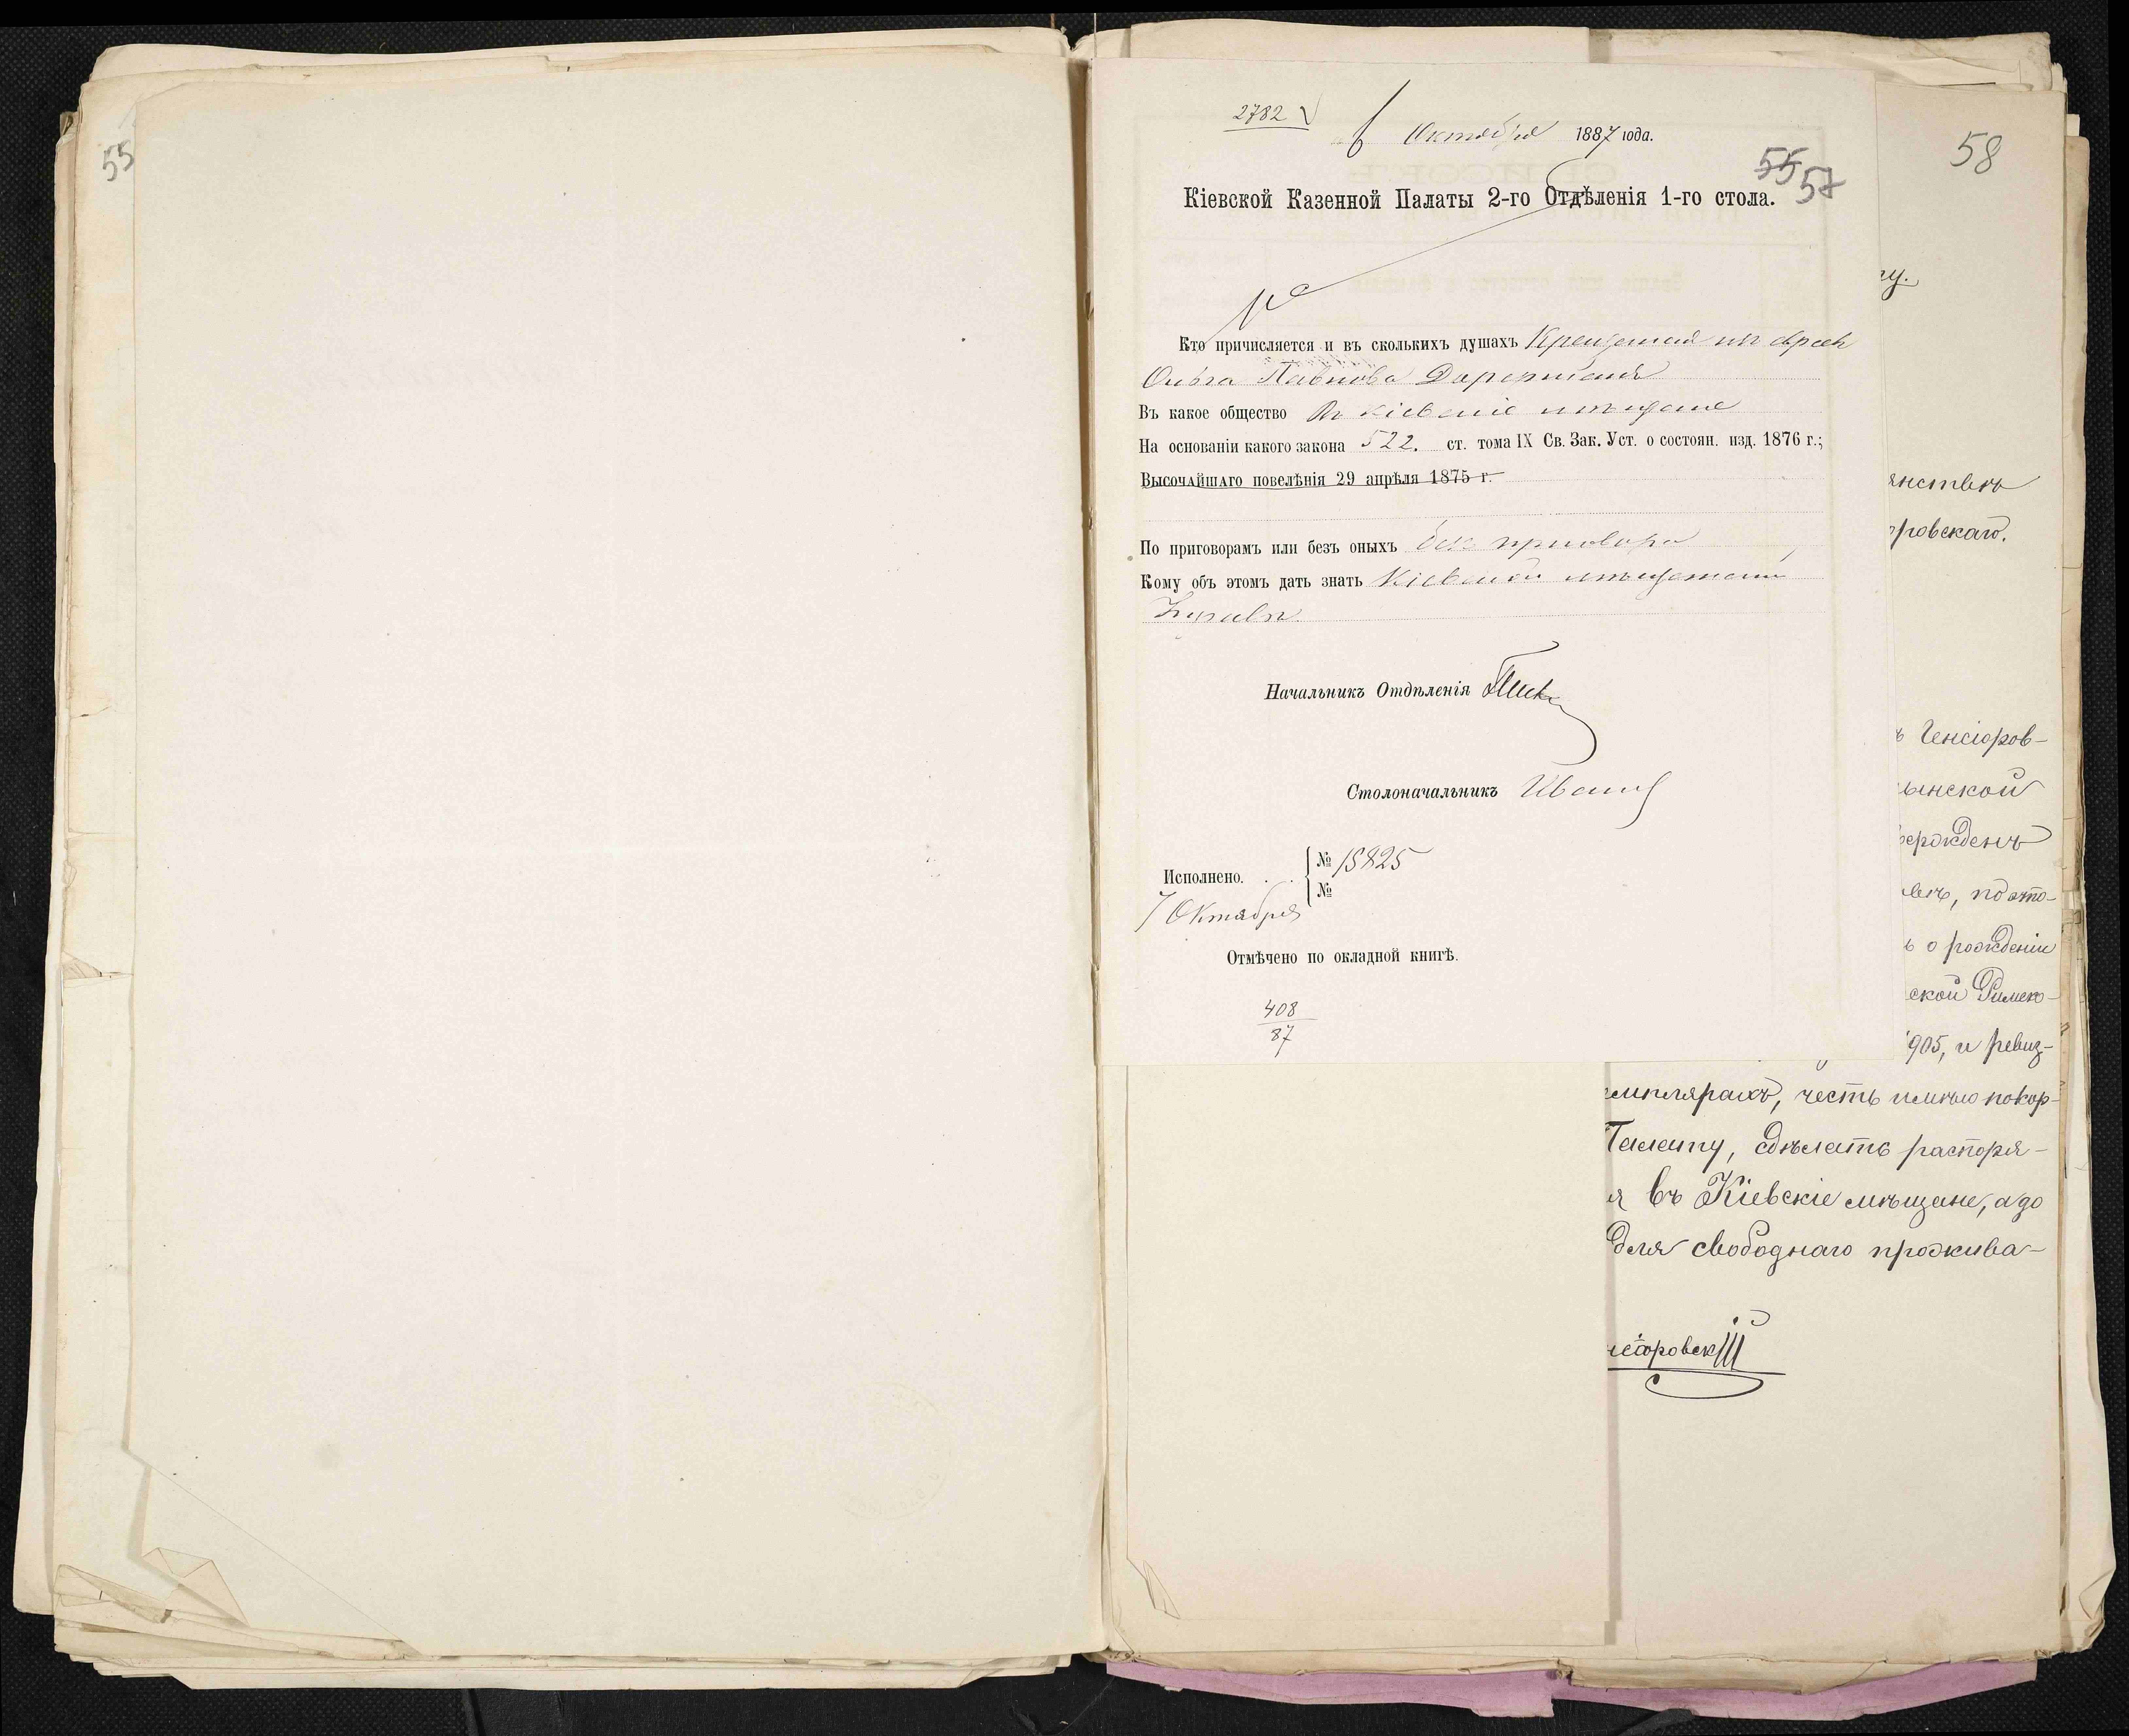 55
2782
6 Октября 1887 года.
55 57
Кіевской Казенной Палаты 2-го Отдѣленія 1-го стола.
Кто причисляется и въ сколькихъ душахъ Крещеная изъ евреек
Ольга Павлова
Въ какое общество Въ кіевскіе мѣщане
На основаніи какого закона 522. ст. тома IX Св. Зак. Уст. о состоян. изд. 1876 г.;
Высочайшаго повелѣнія 29 апрѣля 1875 г.
По приговорамъ или безъ оныхъ безъ приговора
Кому объ этомъ дать знать Кіевской мѣщанской
Управѣ
Начальникъ Отдѣленія
Столоначальникъ
Исполнено. . . № 15825
№
7 Октября
Отмѣчено по окладной книгѣ.
408
87
58
ту.
янствѣ
ровскаго.
ъ Генсіоров-
ынской
вержденъ
, по это-
ь о рожденіи
ской Римско-
905, и ревиз-
емплярахъ, честь имѣю покор-
Палату, сдѣлать распоря-
я въ Кіевскіе мѣщане, а до
для свободнаго прожива-
нсіоровскій